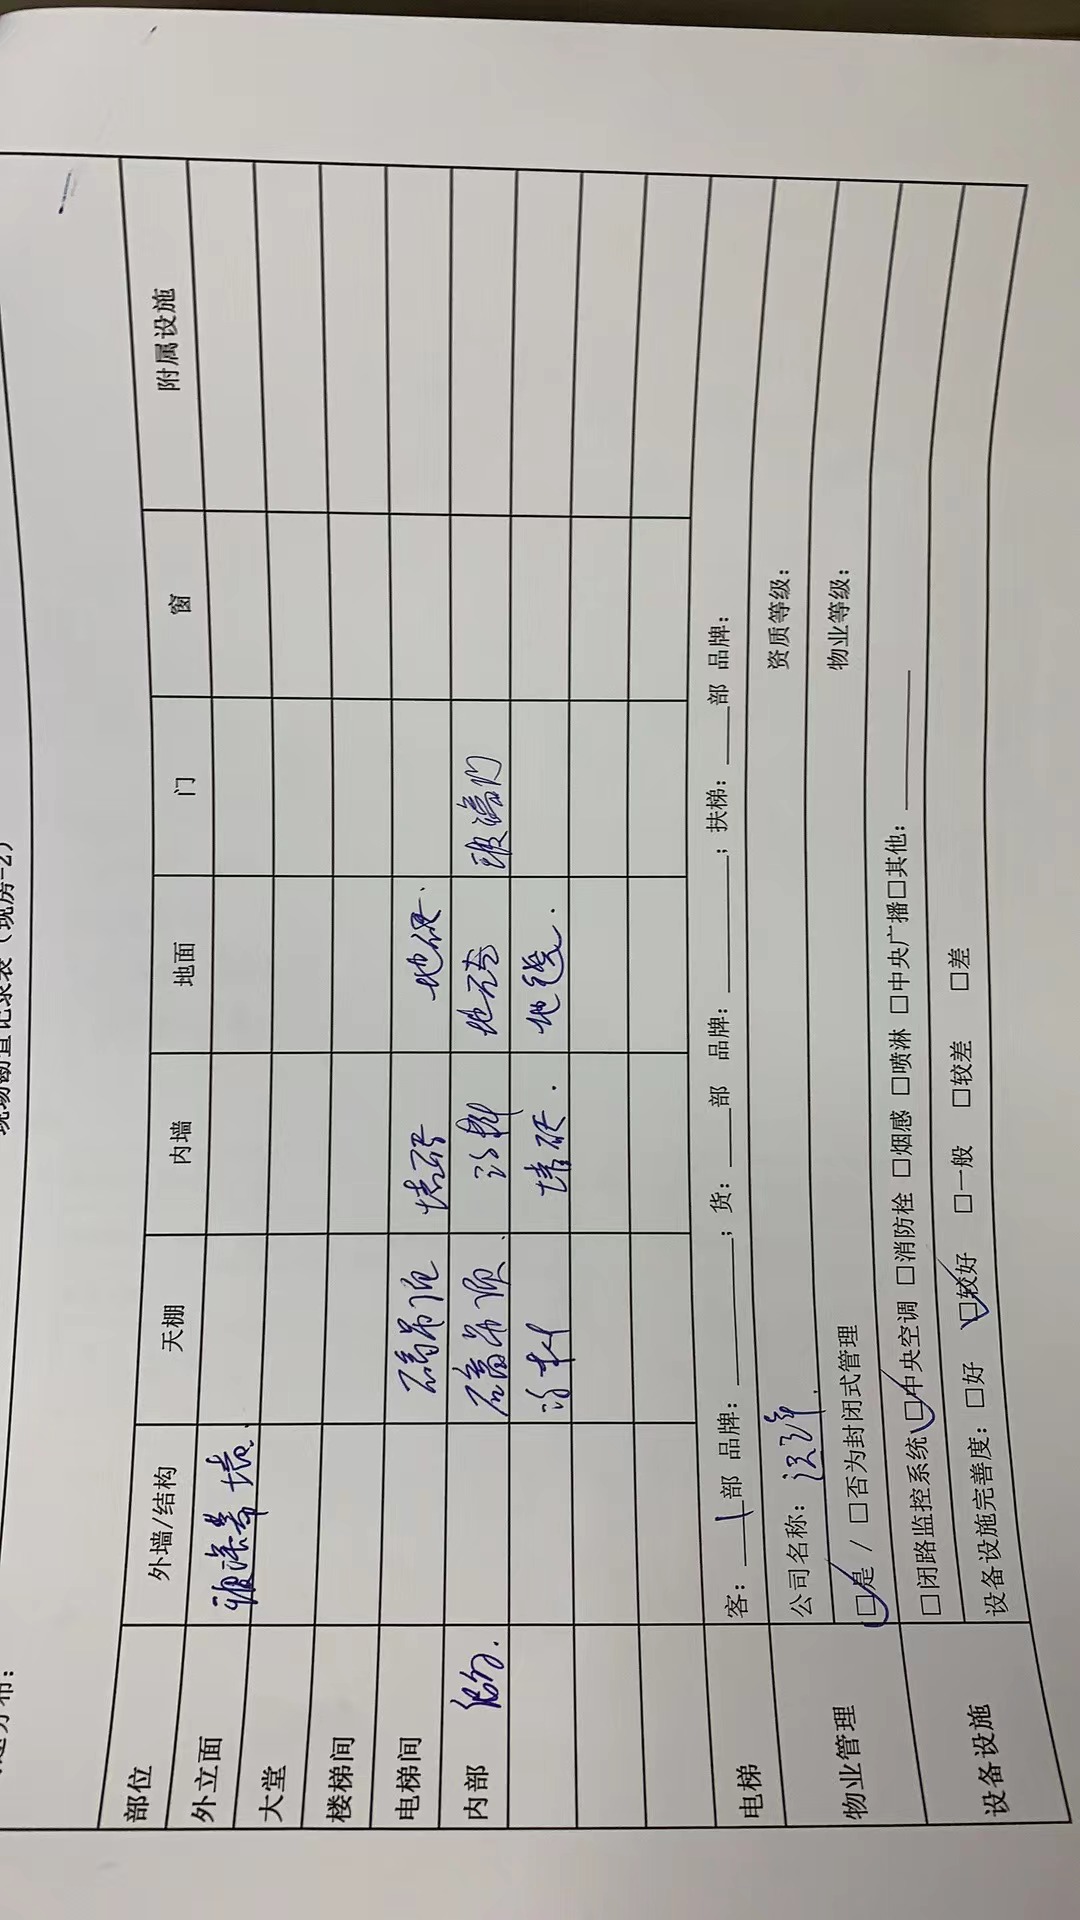 现场勘查记录表（现房-2）
部位 外墙/结构 天棚 内墙 地面 门 窗 附属设施
外立面 玻璃幕墙
大堂
楼梯间
电梯间 石膏吊顶 墙砖 地砖
内部 石膏吊顶 涂料 地砖 玻璃门
涂料 墙砖 地毯
电梯 客：1部 品牌：______；货：___部 品牌：______；扶梯：___部 品牌：
物业管理 公司名称： 资质等级：
☑是 / □否为封闭式管理 物业等级：
设备设施 □闭路监控系统 ☑中央空调 □消防栓 □烟感 □喷淋 □中央广播 □其他：______
设备设施完善度： □好 ☑较好 □一般 □较差 □差